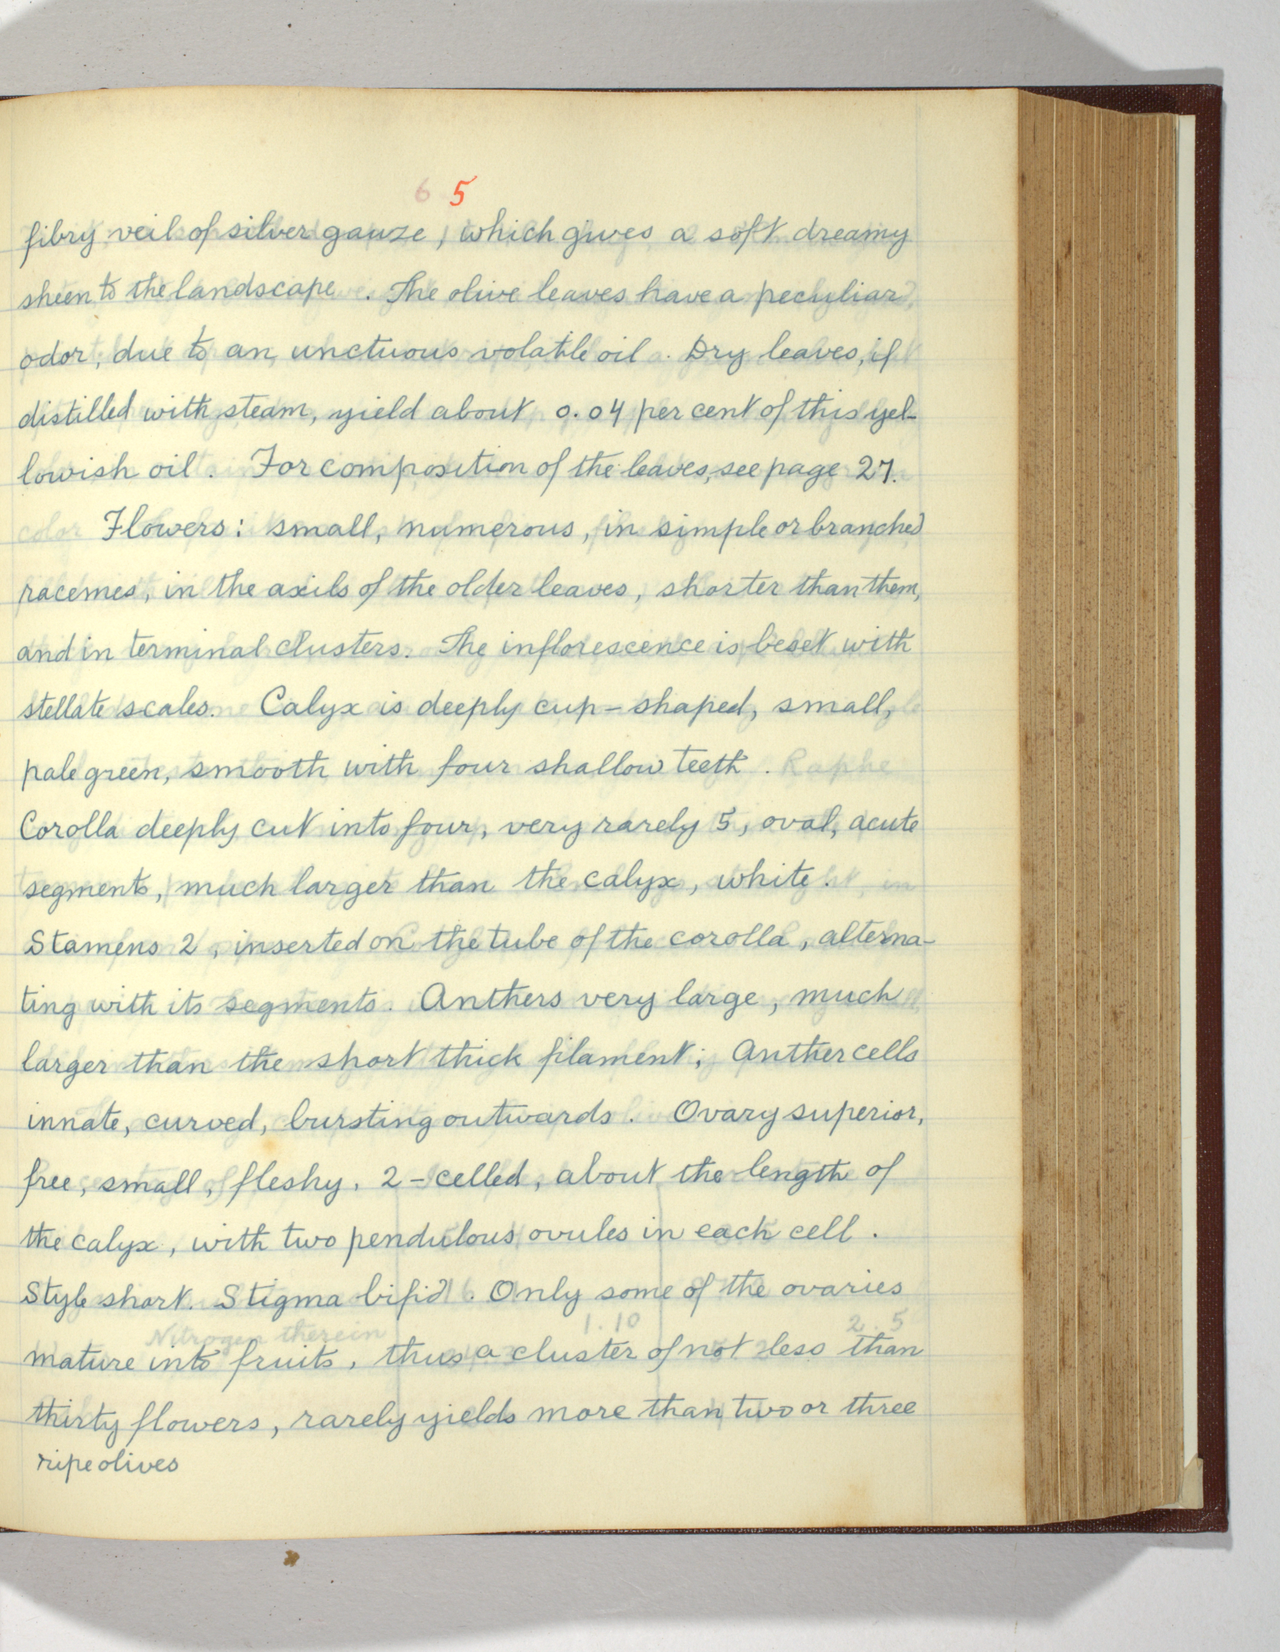 5
fibry veil of silver gauze, which gives a soft dreamy
sheen to the landscape. The olive leaves have a peculiar
odor, due to an unctuous volatile oil. Dry leaves, if
distilled with steam, yield about 0.04 per cent of this yel-
lowish oil. For composition of the leaves, see page 27.
Flowers: small, numerous, in simple or branched
racemes, in the axils of the older leaves, shorter than them,
and in terminal clusters. The inflorescence is beset with
stellate scales. Calyx is deeply cup-shaped, small,
pale green, smooth with four shallow teeth.
Corolla deeply cut into four, very rarely 5, oval, acute
segments, much larger than the calyx, white.
Stamens 2, inserted on the tube of the corolla, alterna-
ting with its segments. Anthers very large, much
larger than the short thick filament; Anther cells
innate, curved, bursting outwards. Ovary superior,
free, small, fleshy, 2-celled, about the length of
the calyx, with two pendulous ovules in each cell.
Style short. Stigma bifid. Only some of the ovaries
mature into fruits, thus a cluster of not less than
thirty flowers, rarely yields more than two or three
ripe olives